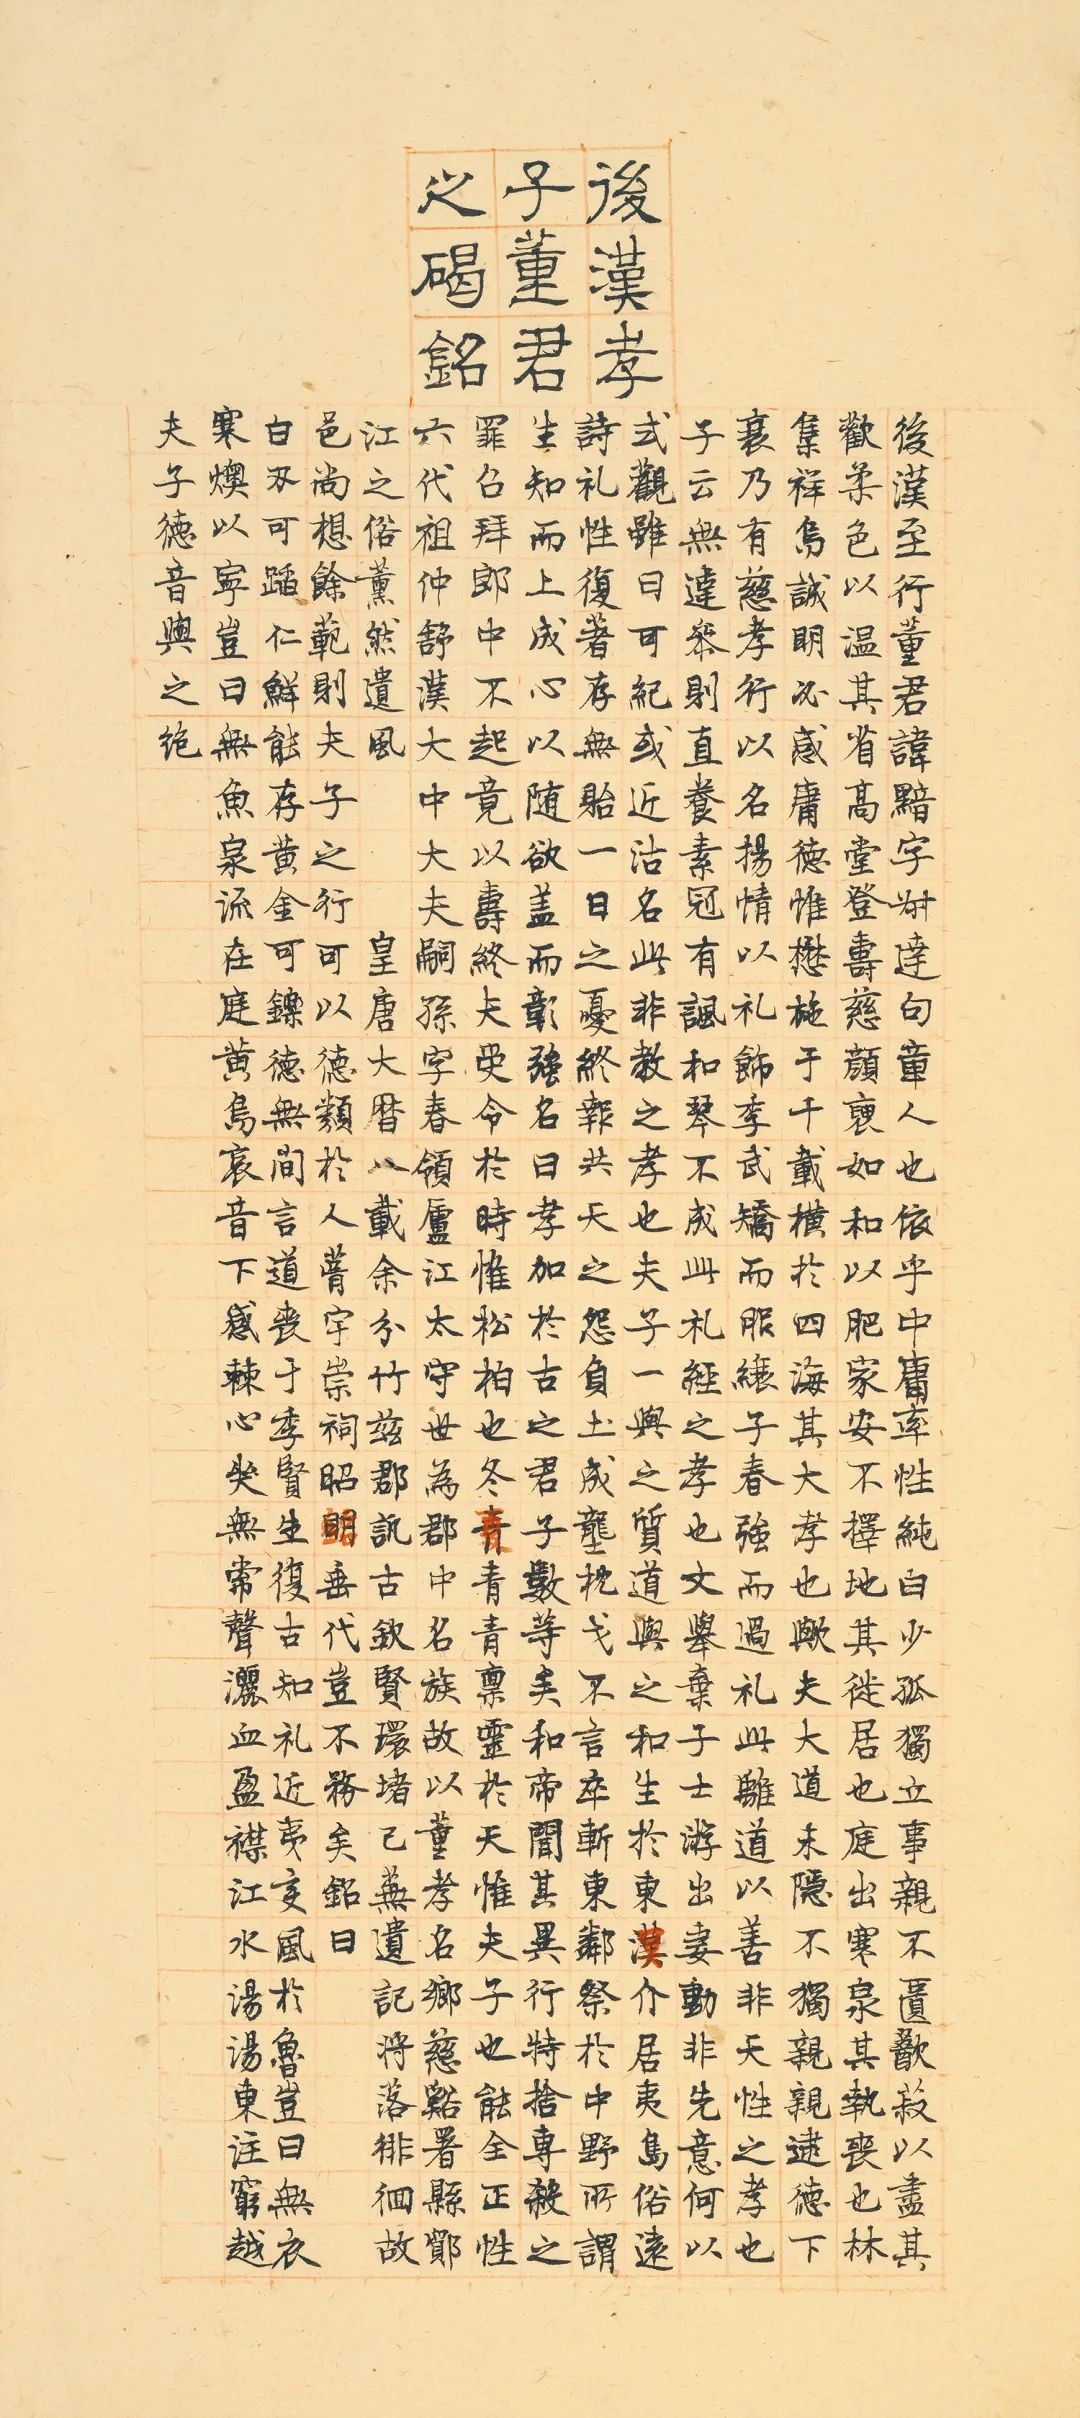 後漢孝
子董君
之碣銘
後漢至行董君諱黯字叔達句章人也依乎中庸率性純白少孤獨立事親不匱歡菽以盡其
歡柔色以温其省高堂登壽慈顔裒如和以肥家安不擇地其徙居也庭出寒泉其執喪也林
集祥烏誠明必感庸德惟懋施于千載横於四海其大孝也歟夫大道未隱不獨親親逮德下
衰乃有慈孝行以名揚情以礼飾季武矯而服縗子春強而過礼此離道以善非天性之孝也
子云無違恭則直養素冠有諷和琴不成此礼經之孝也文舉棄子士游出妻動非先意何以
式觀雖曰可紀或近沽名此非教之孝也夫子一與之質道與之和生於東漢介居夷島俗遠
詩礼性復著存無貽一日之憂終報共天之怨負土成壟枕戈不言卒斬東鄰祭於中野所謂
生知而上成心以随欲盖而彰強名曰孝加於古之君子數等矣和帝聞其異行特捨專殺之
罪召拜郎中不起竟以壽終夫受令於時惟松柏也冬青青青禀靈於天惟夫子也能全正性
六代祖仲舒漢大中大夫嗣孫字春領廬江太守世為郡中名族故以董孝名鄉慈谿署縣鄮
江之俗薰然遺風 皇唐大曆八載余分竹兹郡訊古欽賢環堵已蕪遺記将落徘徊故
邑尚想餘範則夫子之行可以德類於人菁宇崇祠昭明垂代豈不務矣銘曰
白刃可蹈仁鮮能存黄金可鑠德無間言道喪于季賢生復古知礼近夷変風於魯豈曰無衣
寒燠以寧豈曰無魚泉流在庭黄鳥哀音下感棘心哭無常聲灑血盈襟江水湯湯東注窮越
夫子德音與之絶